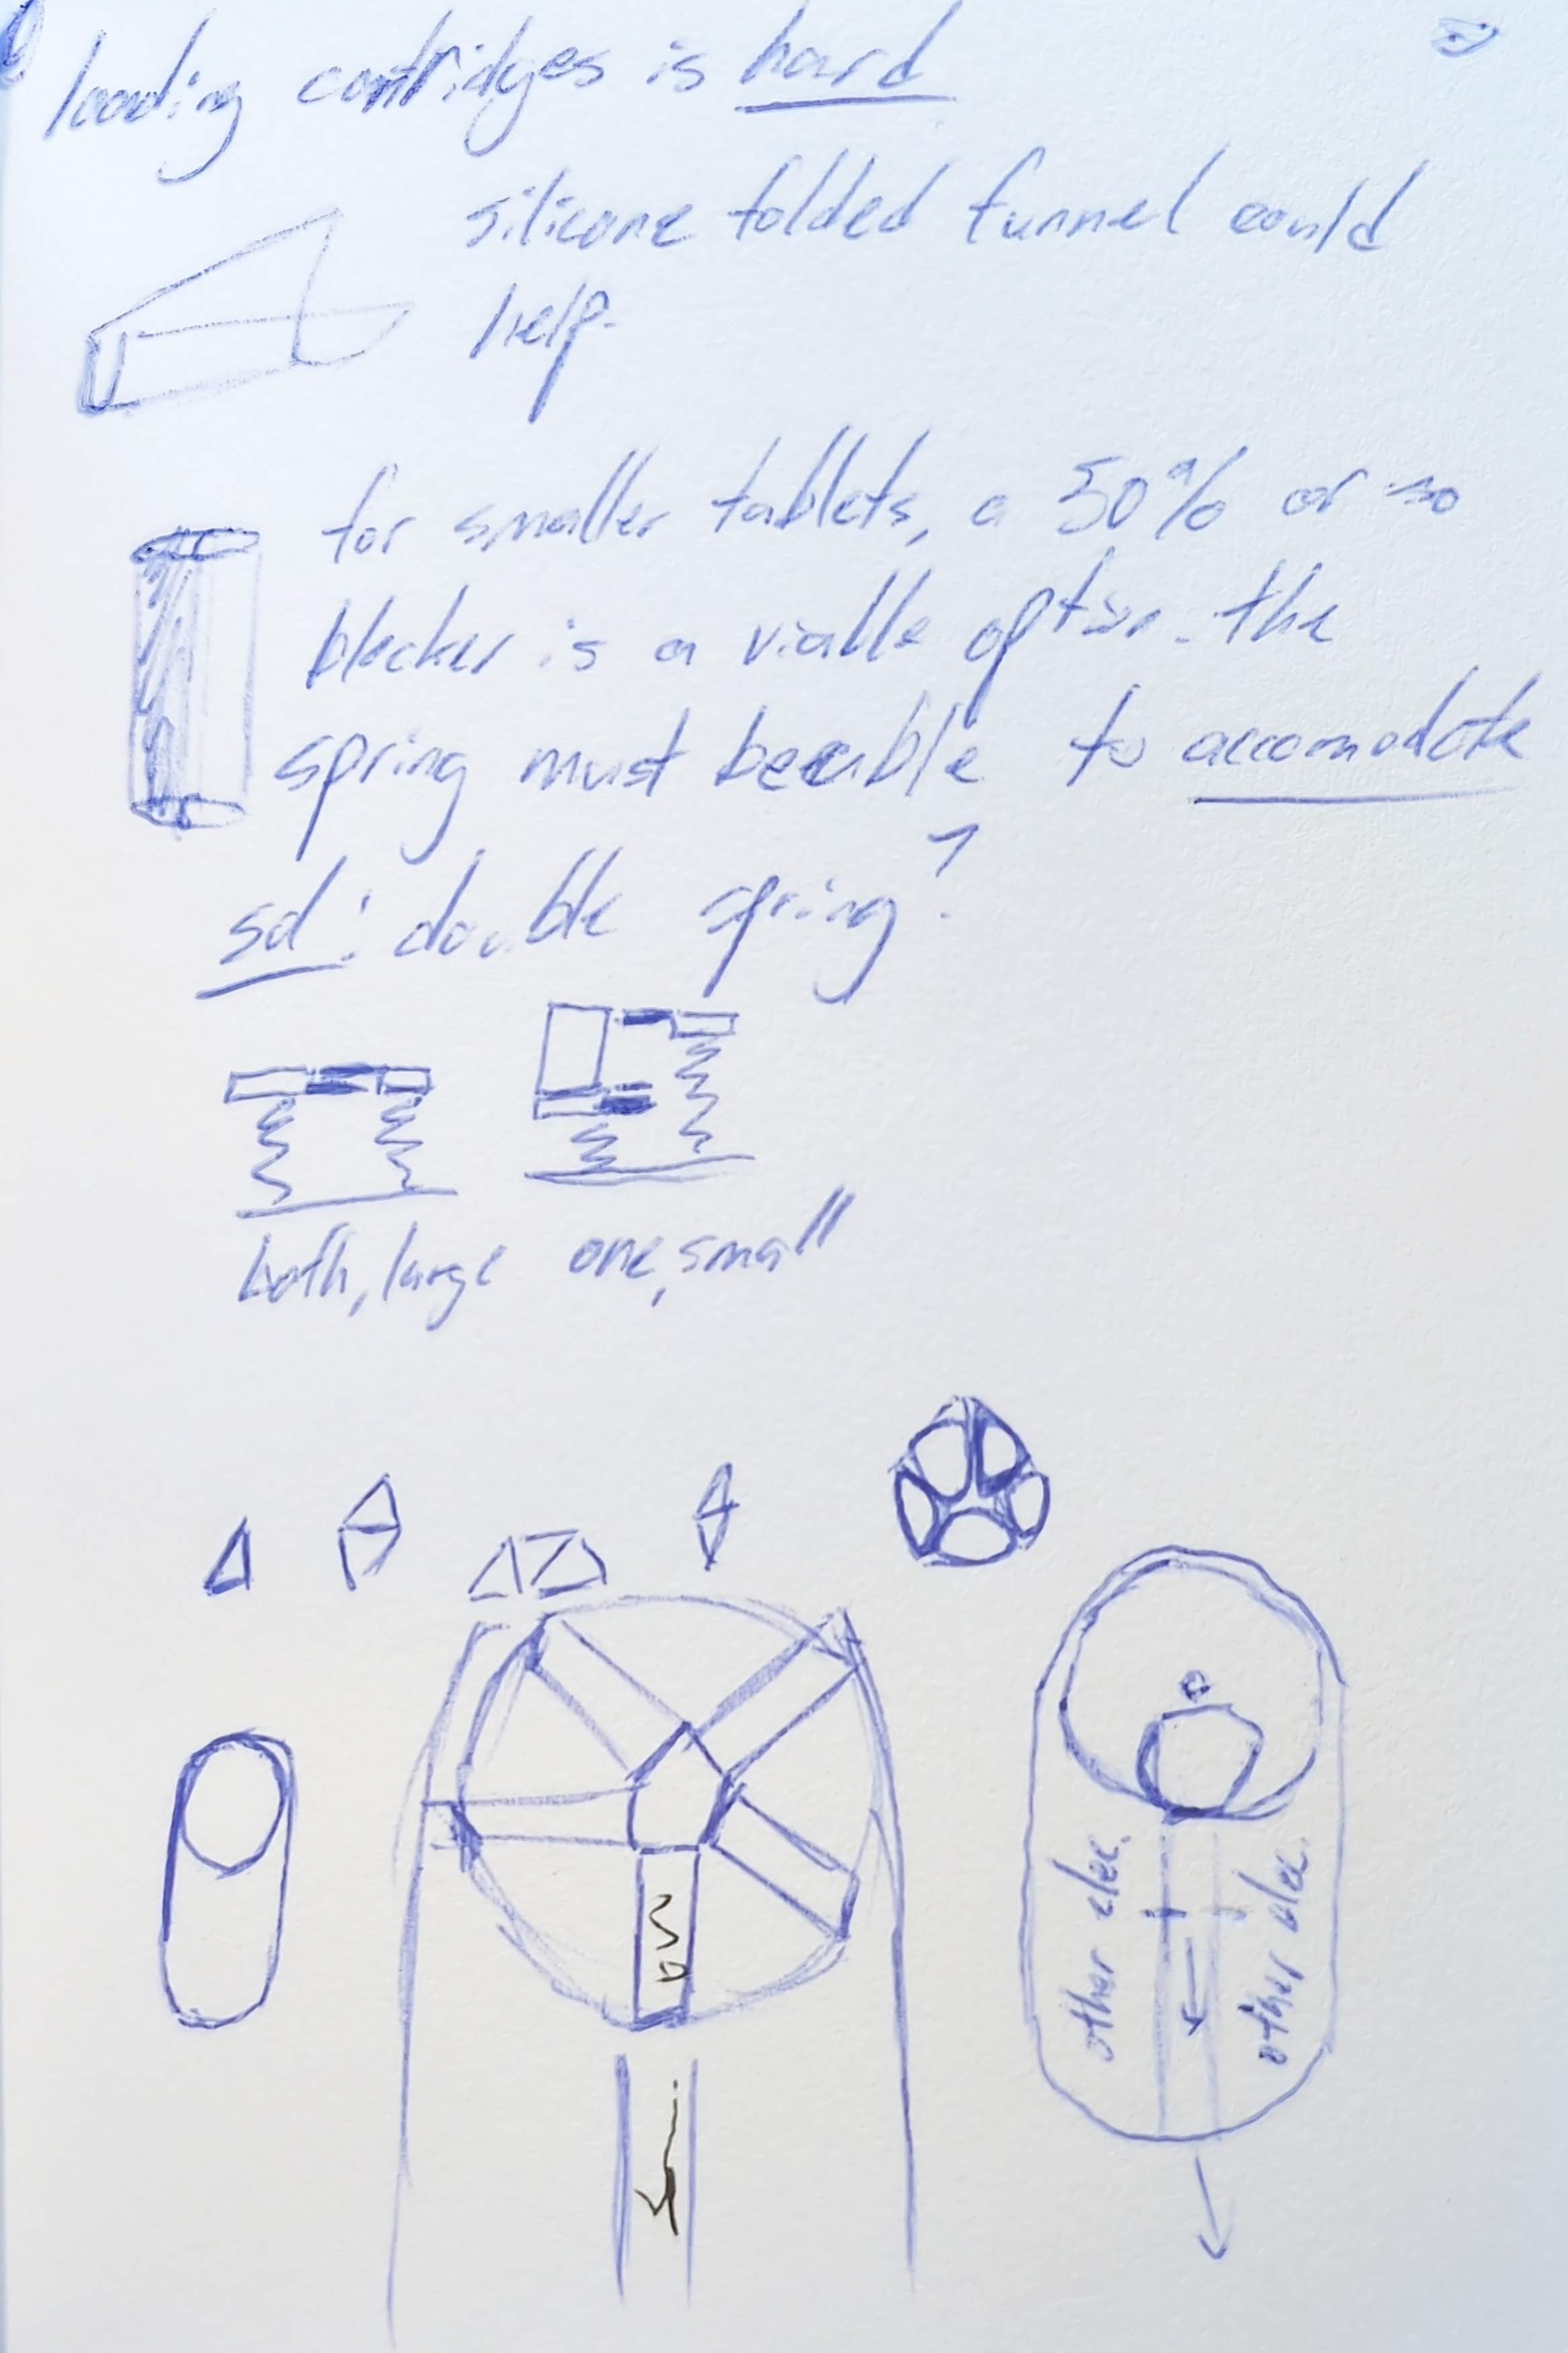 loading cartridges is hard
silicone folded funnel could
help.
for smaller tablets, a 50% or so
blocker is a viable option. the
spring must be able to accomodate
sol: double spring?
both, large one, small
other elec.
other elec.